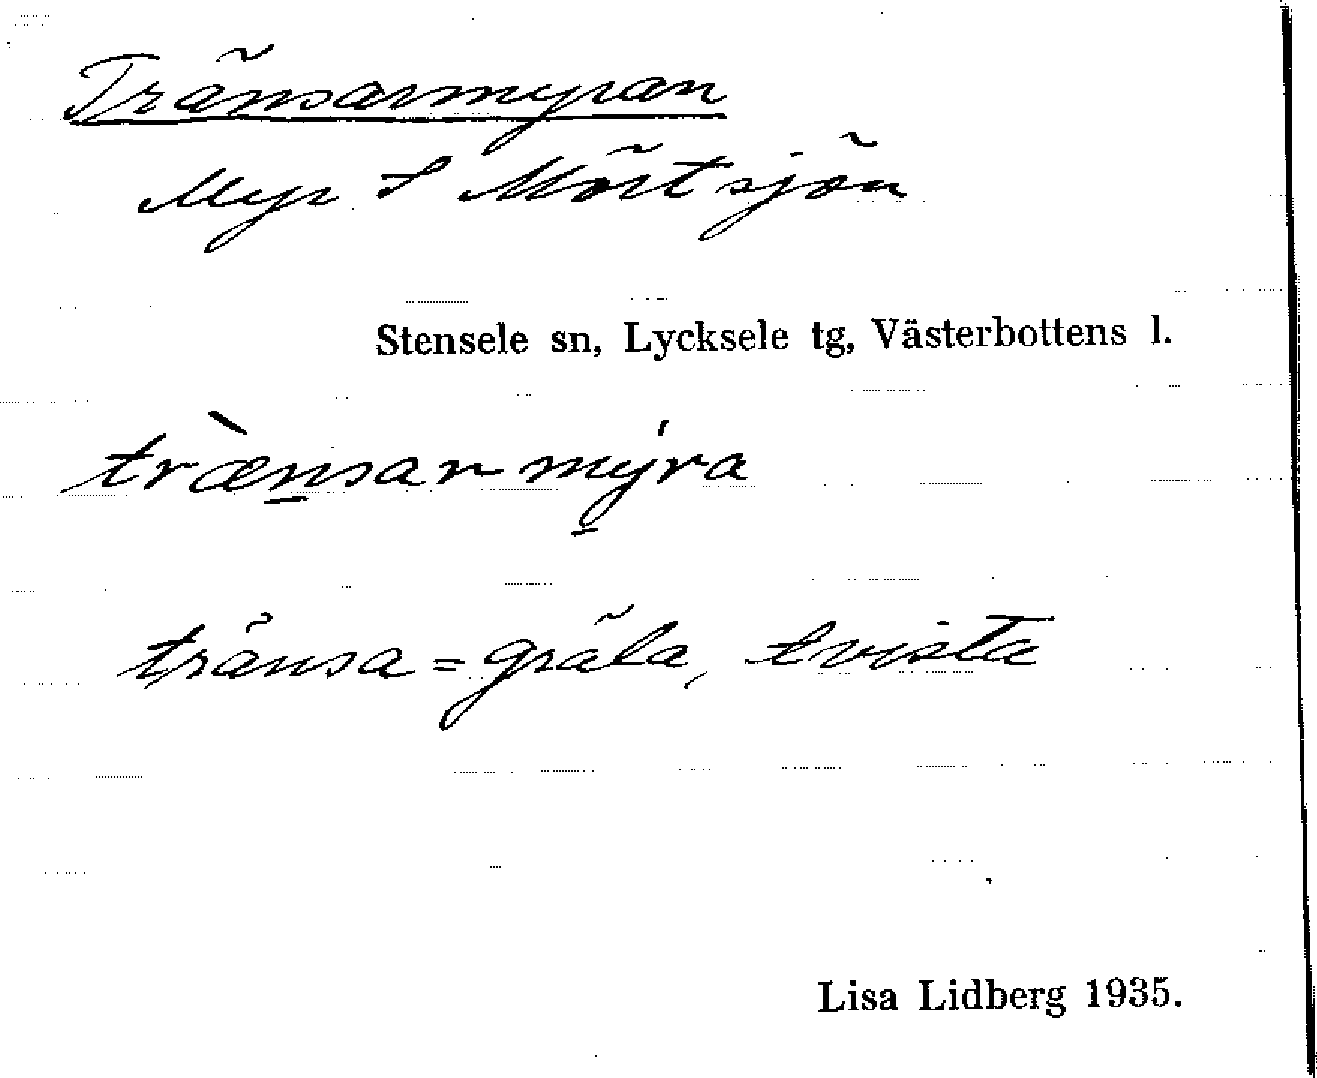 Tränsarmyran
Myr S Mörtsjön
Stensele sn, Lycksele tg, Västerbottens l.
træ̀nsarmýra
tränsa = gräla, tvista
Lisa Lidberg 1935.